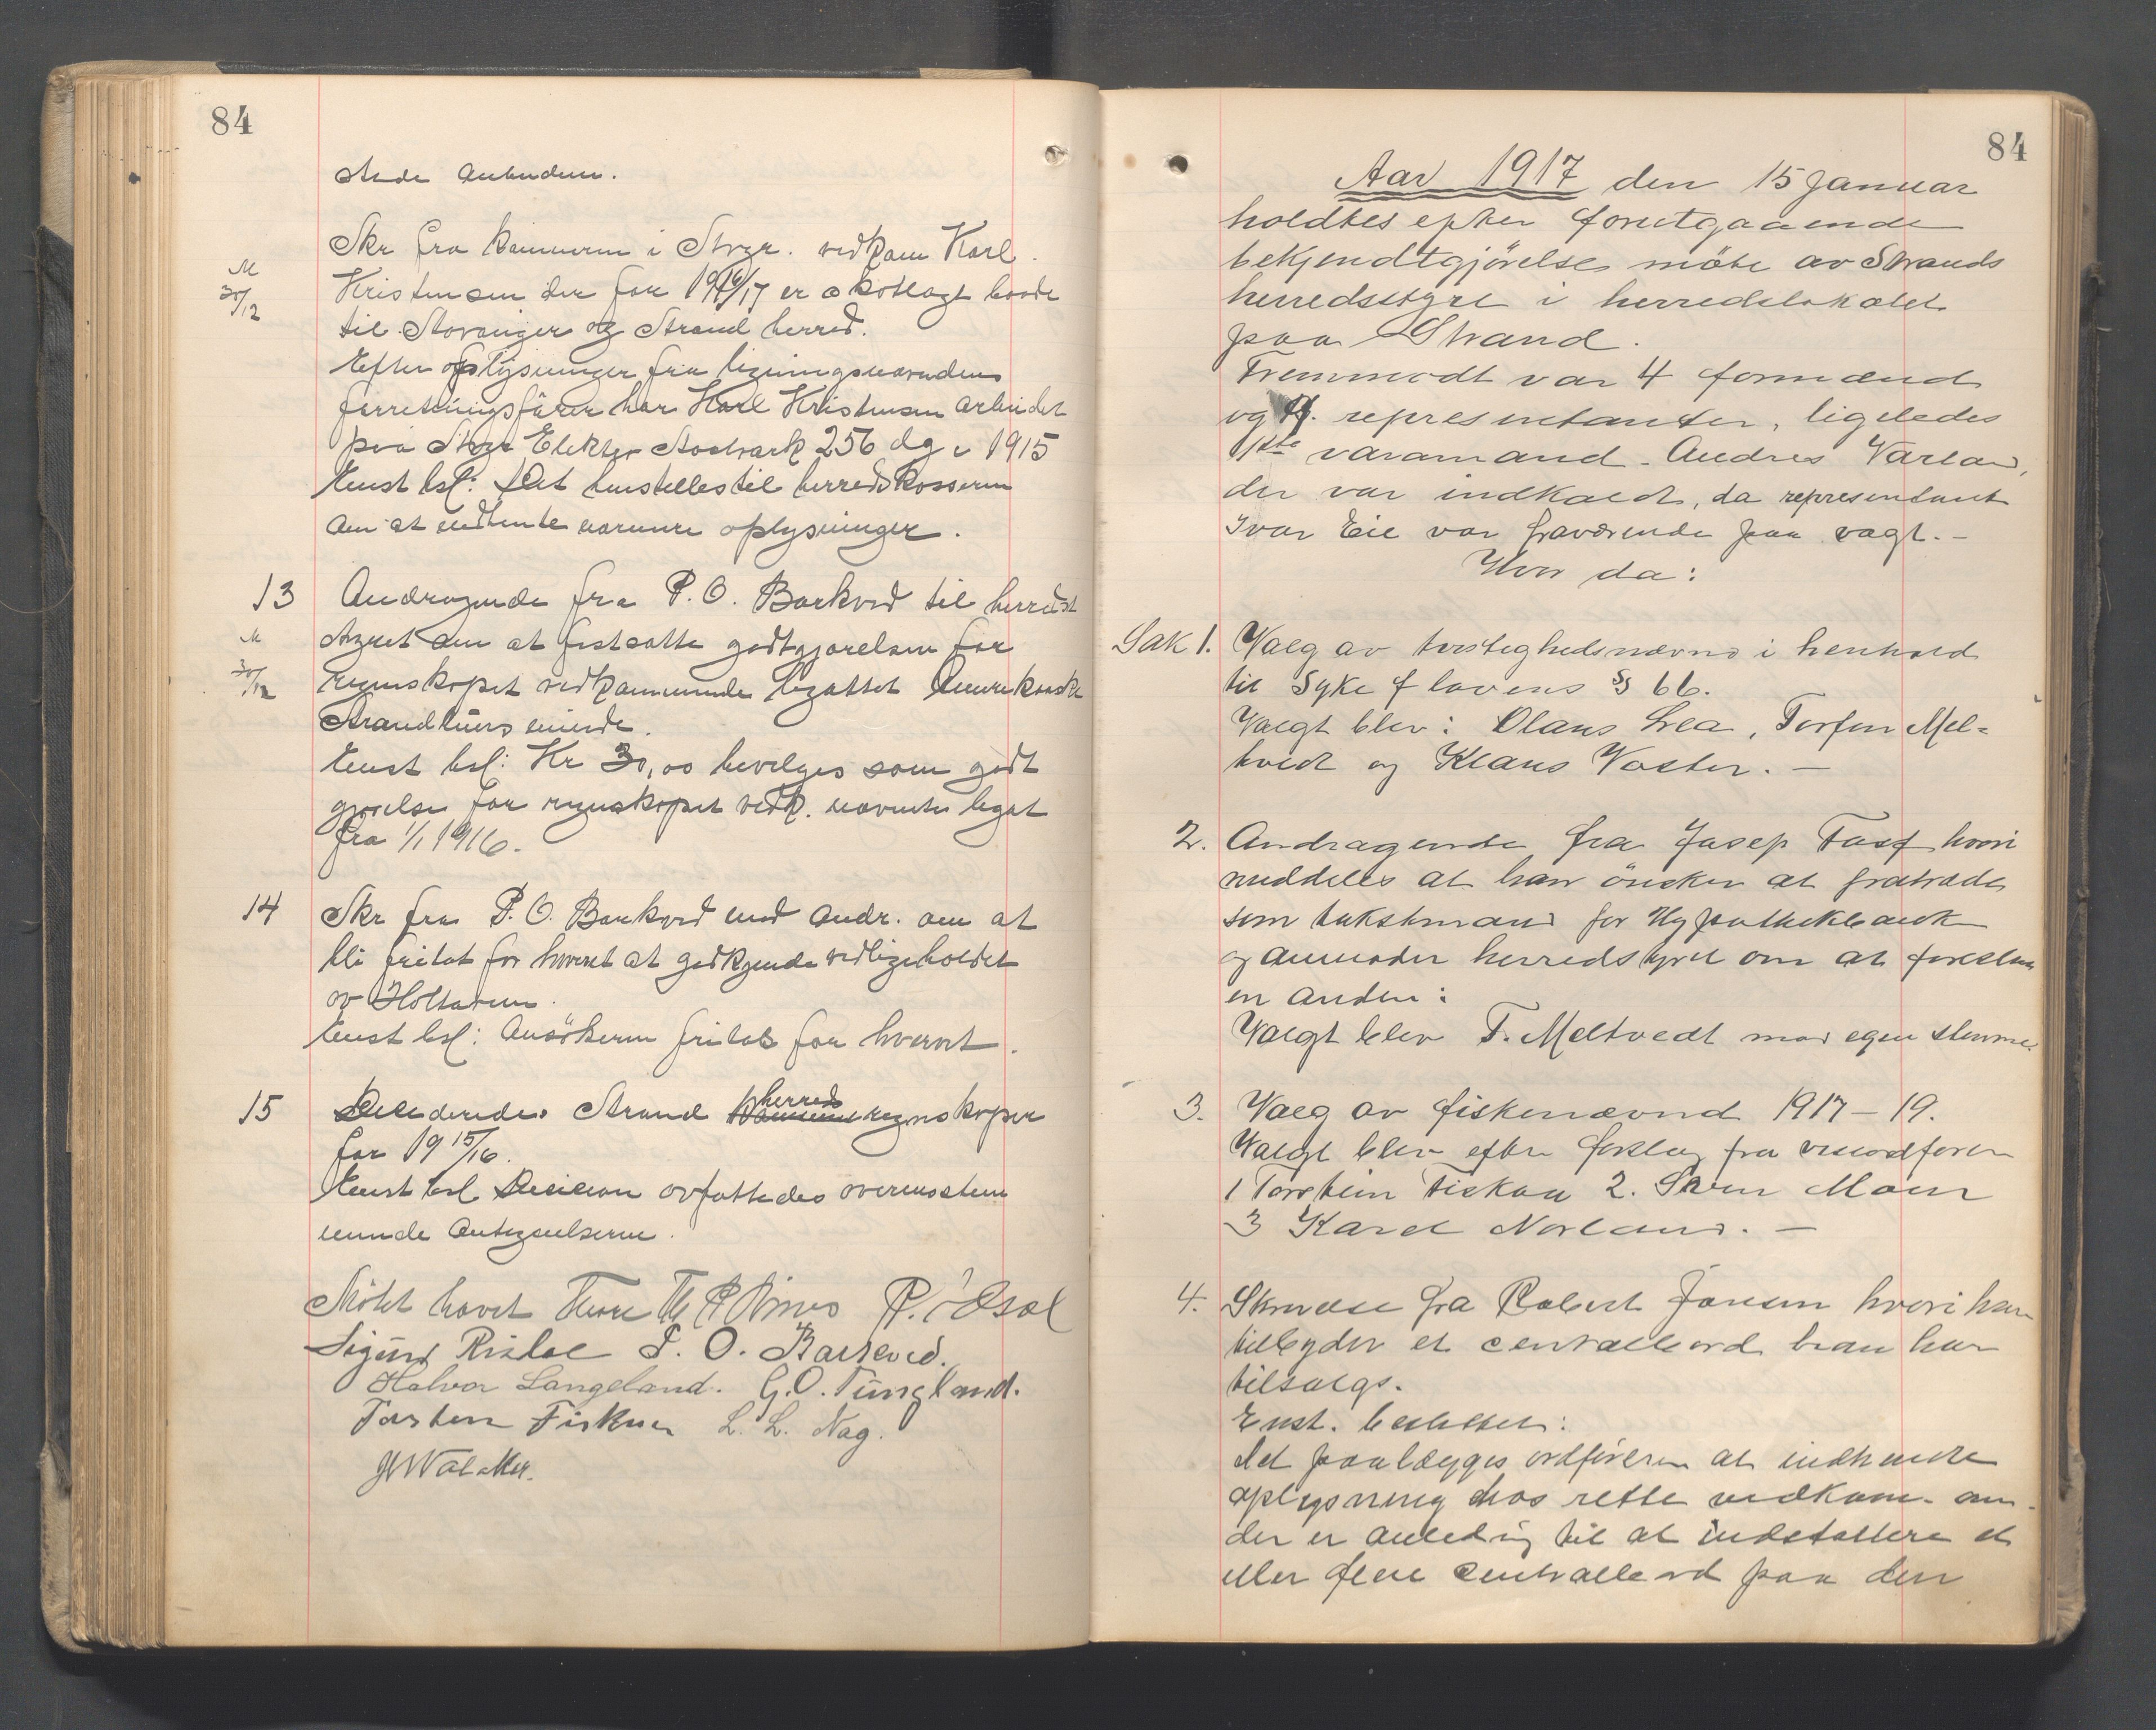 84
stede anbudene.
Skr fra kemneren i Stvgr. vedkom Karl
M
30/12
Kristensen der for 1916/17 er skatlagt baade
til Stavanger og Strand herred.
Efter oplysninger fra ligningsnævndens
forretningsfører har Karl Kristensen arbeidet
paa Stvgr Elektr Staalverk 256 dg i 1915
Enst bsl: Det henstilles til herredskasseren
om at indhente nærmere oplysninger.
13 Andragende fra P. O. Barkved til herredst
M
30/12
styret om at fastsætte godtgjørelsen for
regnskapet vedkommende legatet Amerikanske
Strandbuers minde.
Enst bsl: Kr 30,00 bevilges som godt
gjørelse for regnskapet vedk. nævnte legat
fra 1/1 1916.
14 Skr fra P. O. Barkved med andr. om at
bli fritat for hvervet at godkjende vedligeholdet
av Holtaveien.
Enst bsl: Ansökeren fritas for hvervet.
15 Deciderede Strand herreds regnskaper
for 1915/16.
Enst bsl Decision avfattedes overensstem
mende antegnelserne.
Møtet hævet Tore P. Idsal
Sigurd Riskal P. O. Barkved.
Halvor Langeland. G. O. Tungland.
Torsten Fiskaa L. L. Nag.
84
Aar 1917 den 15 Januar
holdtes efter forutgaaende
bekjendtgjörelse möte av Strands
herredsstyre i herredslokalet
paa Strand.
Fremmødt var 4 formænd
og representanter, ligeledes
1ste varamand. Andres Varland,
der var indkaldt, da representant
Ivar Eie var fraværende paa vagt.-
Hvor da:
Sak 1. Valg av tvistighedsnævnd i henhold
til Syke f lovens § 66.
Valgt blev: Olaus Lea, Torfin Mel=
tvedt og Klaus Vaster. -
2. Andragende fra Josep Tust hvori
meddeles at han önsker at fratræde
som takstmand for Hypothekbank
og anmoder herredstyret om at foreslaa
en anden:
Valgt blev T. Meltvedt mod egen stemme.
3. Valg av fiskenævnd 1917-19.
Valgt blev efter forslag fra viseordfører
1 Torstein Fiskaa 2. Sven Moen
3 Karel Norland. -
4. Skrivelse fra Robert Jonsen hvori han
tilbyder et centralbord han har
tilsalgs.
Enst. besluttet:
Det paalægges ordföreren at indhente
oplysning hos rette vedkom. om
der er anledning til at indstallere et
eller flere centralbord paa den